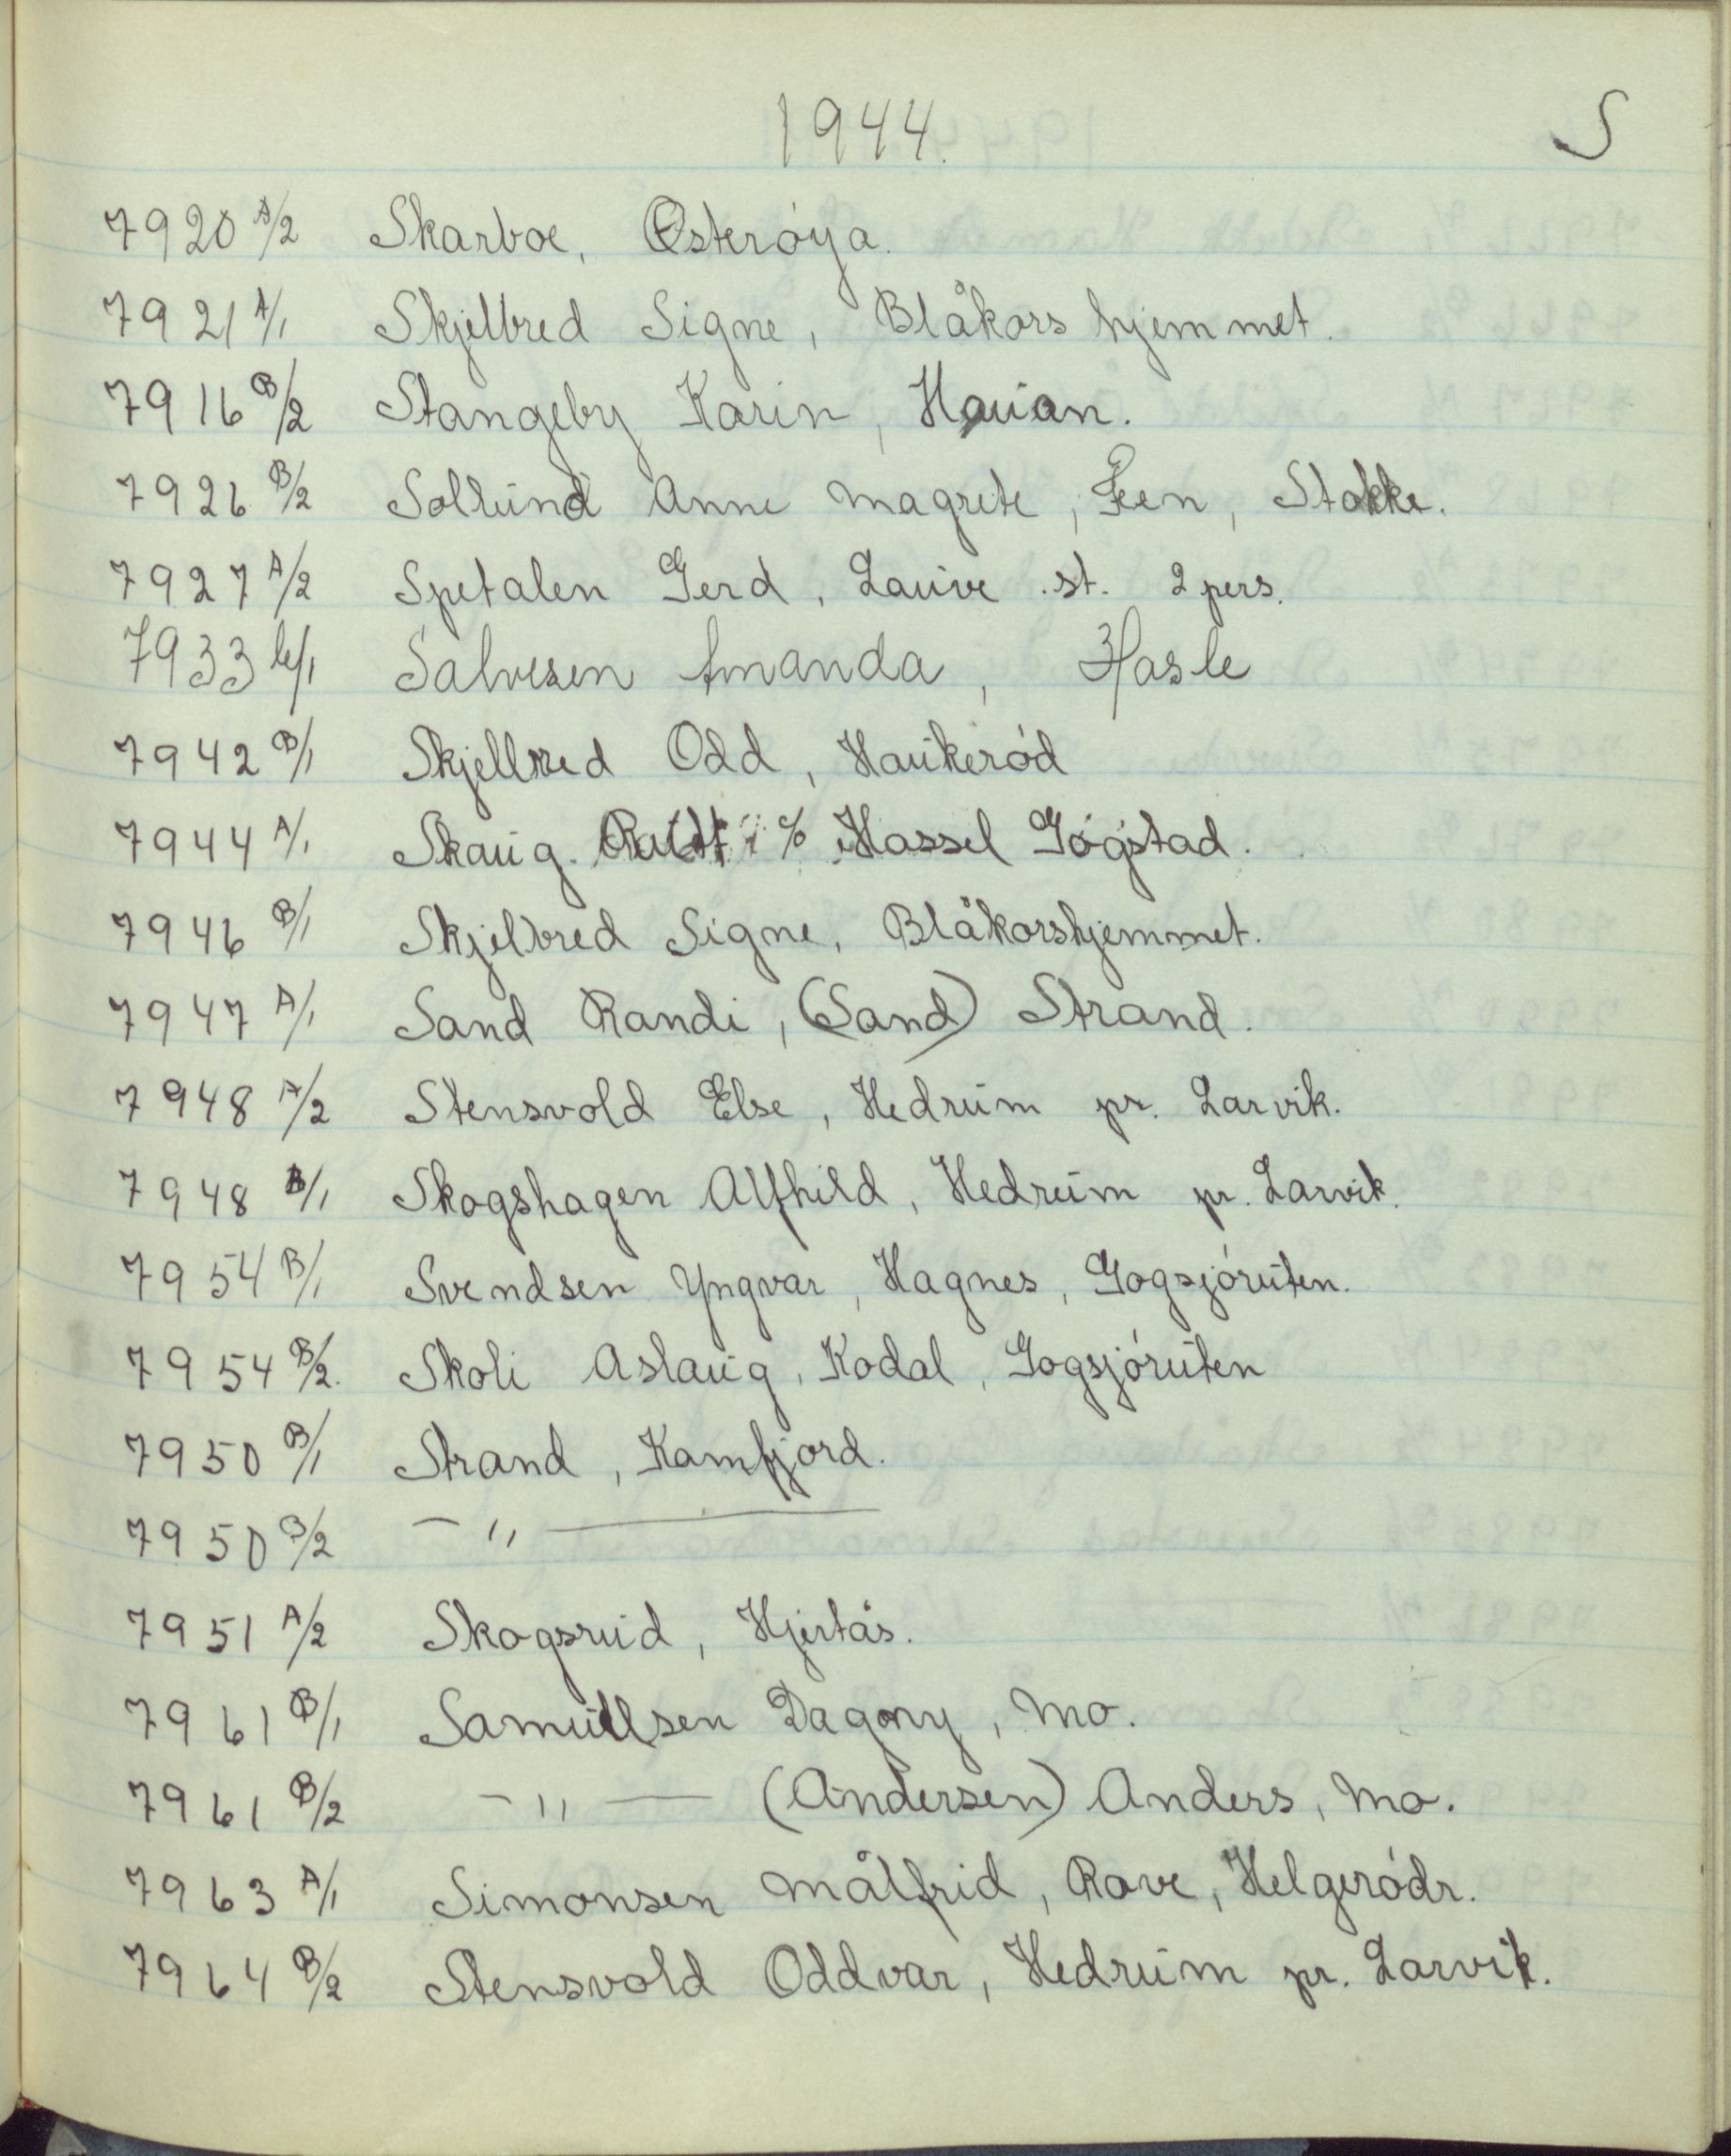 1944. S
7920 A/2 Skarboe, Østerøya.
7921 A/1 Skjelbred Signe, Blåkors hjemmet.
7916 B/2 Stangeby Karin, Hauan.
7926 B/2 Sollund Anne Magrete, Feen, Stokke.
7927 A/2 Spetalen Gerd, Lauve .st. 2 pers.
7933 b/1 Salvesen Amanda, Hasle
7942 B/1 Skjelbred Odd, Haukerød
7944 A/1 Skaug. % Hassel Gøgstad.
7946 B/1 Skjelbred Signe, Blåkorshjemmet.
7947 A/1 Sand Randi, (Sand) Strand.
7948 A/2 Stensvold Else, Hedrum pr. Larvik.
7948 B/1 Skogshagen Alfhild, Hedrum pr. Larvik.
7954 B/1 Svendsen Yngvar, Hagnes, Gogsjøruten.
7954 B/2. Skoli Aslaug, Kodal, Gogsjøruten
7950 B/1 Strand, Kamfjord.
7950 B/2 — " —
7951 A/2 Skogsrud, Hjertås.
7961 B/1 Samuelsen Dagny, Mo.
7961 B/2 — " — (Andersen) Anders, Mo.
7963 A/1 Simonsen Målfrid, Rove, Helgerødr.
7964 B/2 Stensvold Oddvar, Hedrum pr. Larvik.